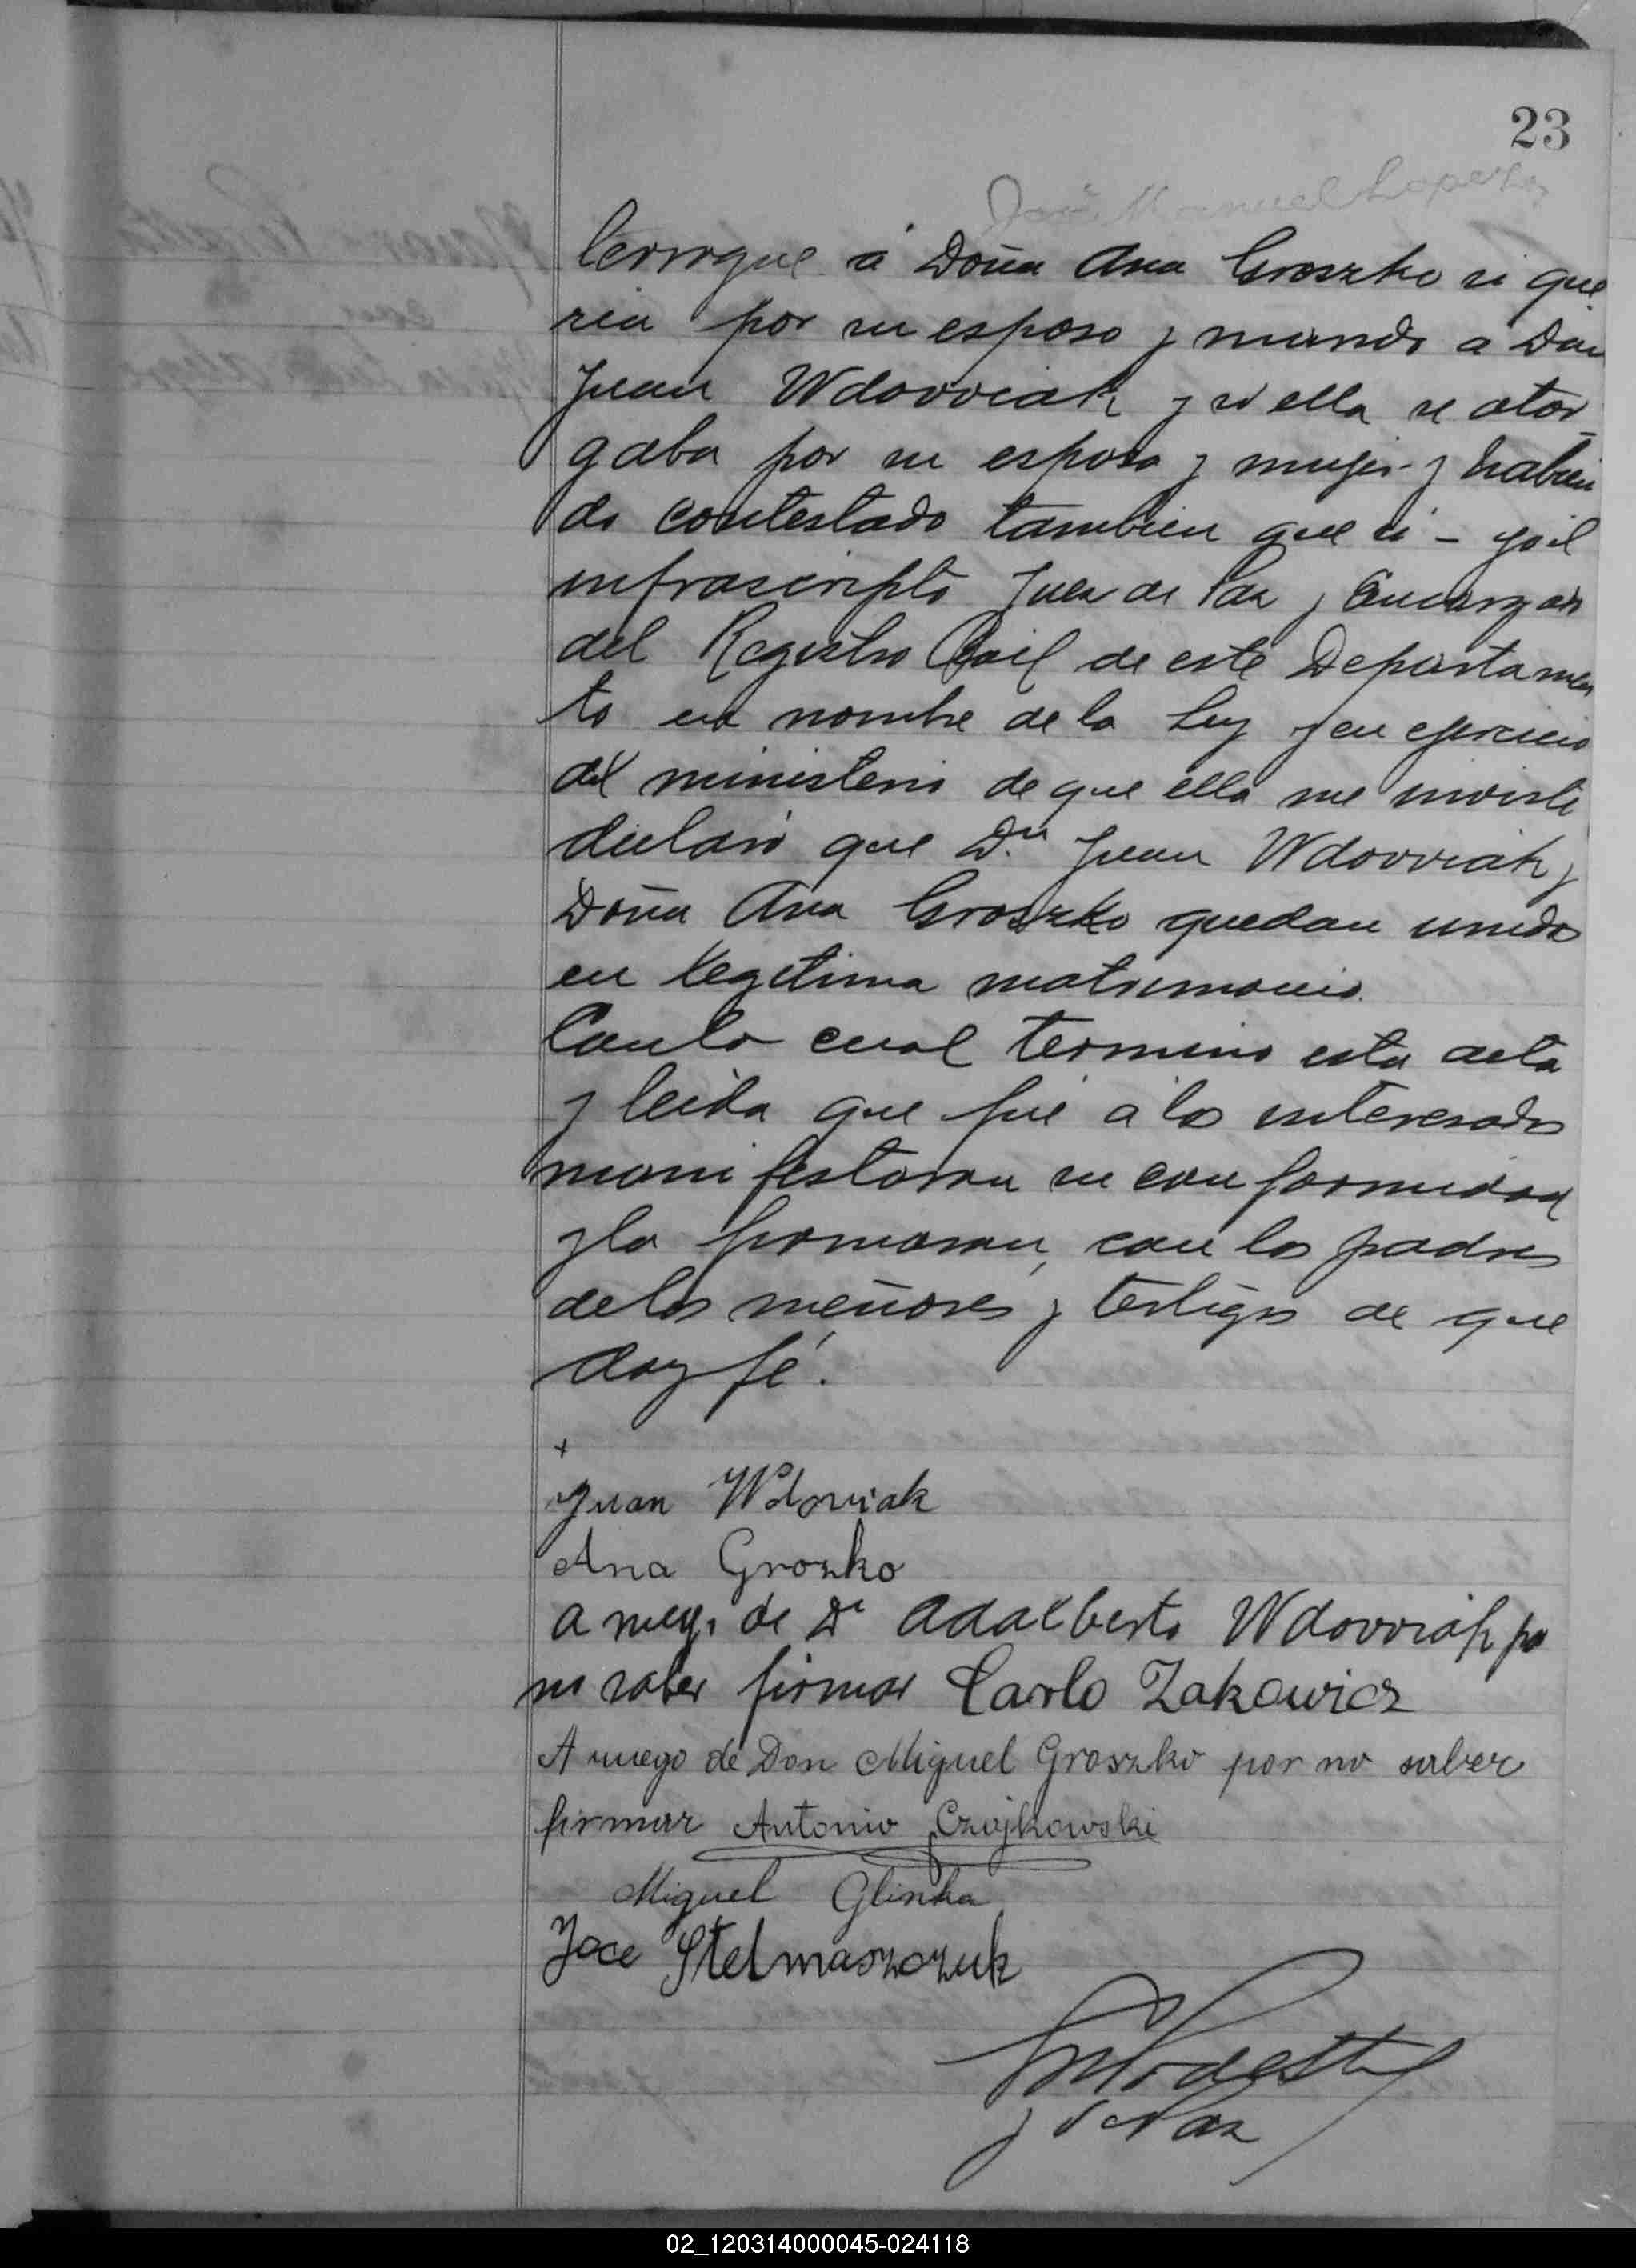 23
José Manuel Lopez
terrogue á Doña Ana Groszko si que
ria por su esposo y marido a Don
Juan Wdowiak y si ella se otor
gaba por su esposa y mujer y habien
do contestado tambien que si – yo el
infrascripto Juez de Paz y Encargado
del Registro Civil de este Departamen
to en nombre de la Ley y en ejercicio
del ministerio de que ella me inviste
declaró que Dn Juan Wdowiak y
Doña Ana Groszko quedan unidos
en legitima matrimonio.
Con lo cual termino esta acta
y leida que fué a los interesados
manifestaron su conformidad
y la firmaron, con los padres
de los menores y testigos de que
doy fé.
+
Juan Wdowiak
Ana Grozko
a rueg. de Dn Adalberto Wdowiak por
no saber firmar Carlo Zakowicz
A ruego de Don Miguel Groszko por no saber
firmar Antonio Czajkowski
Miguel Glinka
Jose Stelmaszczuk
J de Paz
02_120314000045-024118